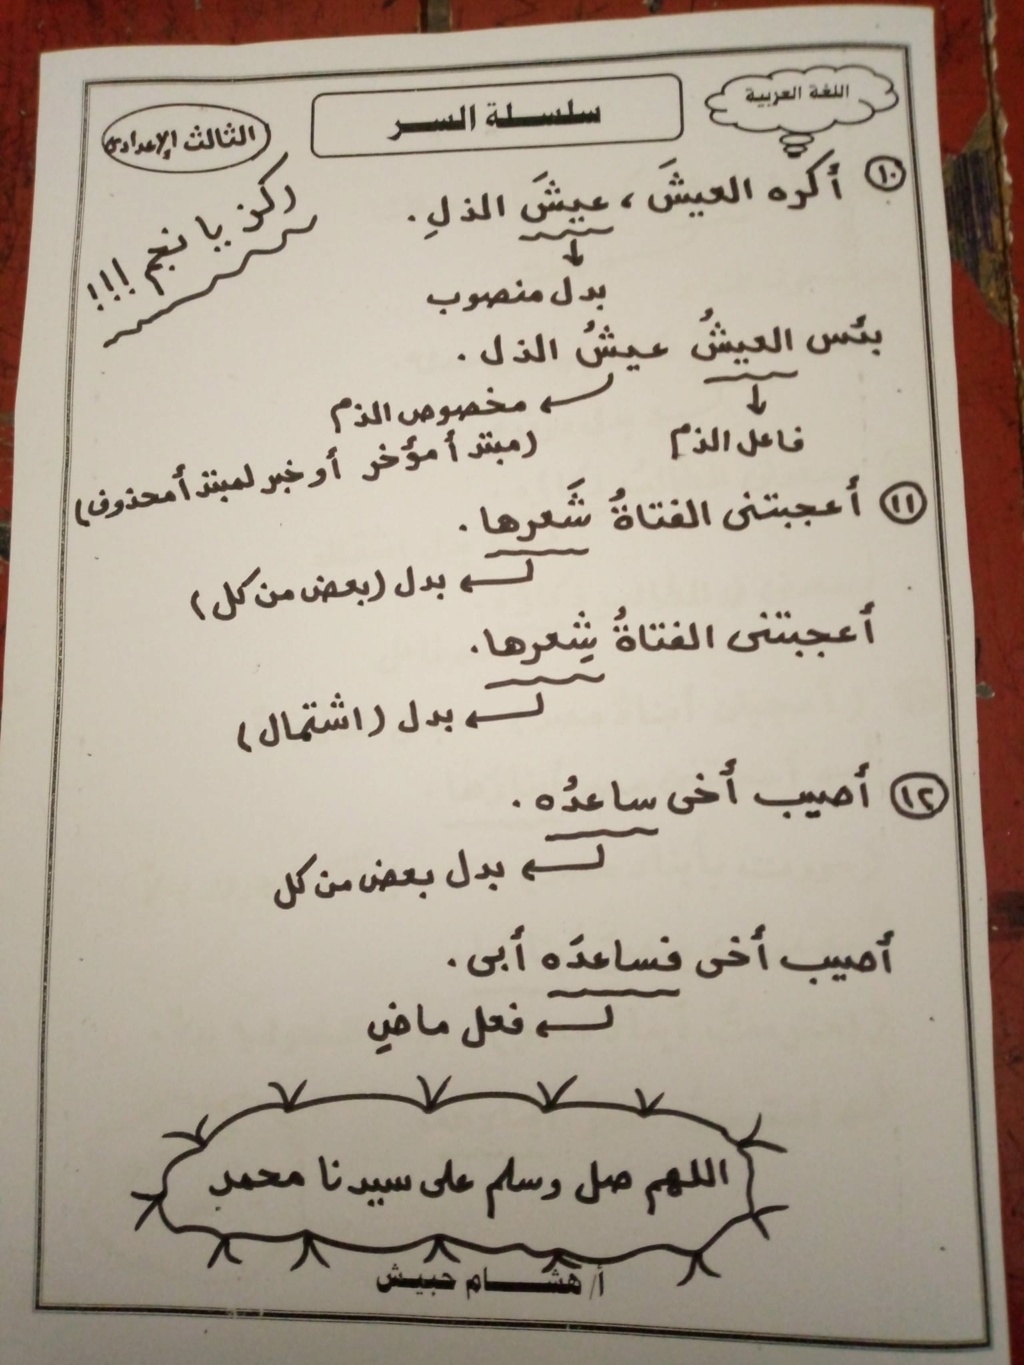 اللغة العربية
سلسلة السر
الثالث الإعدادى
ركز يا نجم !!!
١٠ أكره العيشَ ، عيشَ الذلِ .
بدل منصوب
بئس العيشُ عيشُ الذل .
فاعل الذم
مخصوص الذم
(مبتدأ مؤخر أو خبر لمبتدأ محذوف)
١١ أعجبتنى الفتاةُ شَعرها .
بدل (بعض من كل)
أعجبتنى الفتاةُ شِعرها .
بدل (اشتمال)
١٢ أصيب أخى ساعدُه .
بدل بعض من كل
أصيب أخى فساعدَه أبى .
فعل ماضٍ
اللهم صل وسلم على سيدنا محمد
أ/ هشام حبيش